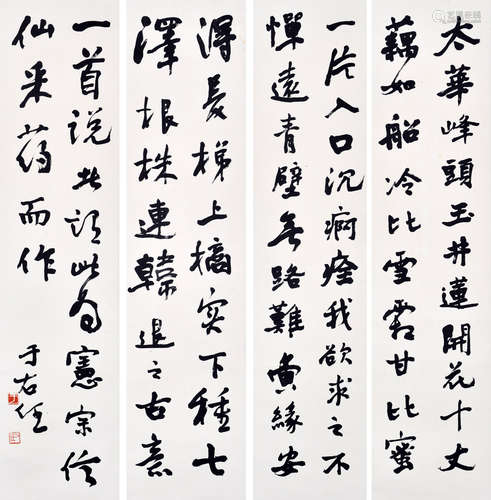 太華峰頭玉井蓮開花十丈
藕如船冷比雪霜甘比蜜
一片入口沉痾痊我欲求之不
憚遠青壁无路難夤緣安
得長梯上摘实下種七
澤根株連韓退之古意
一首说者谓此为憲宗信
仙采药而作
于右任